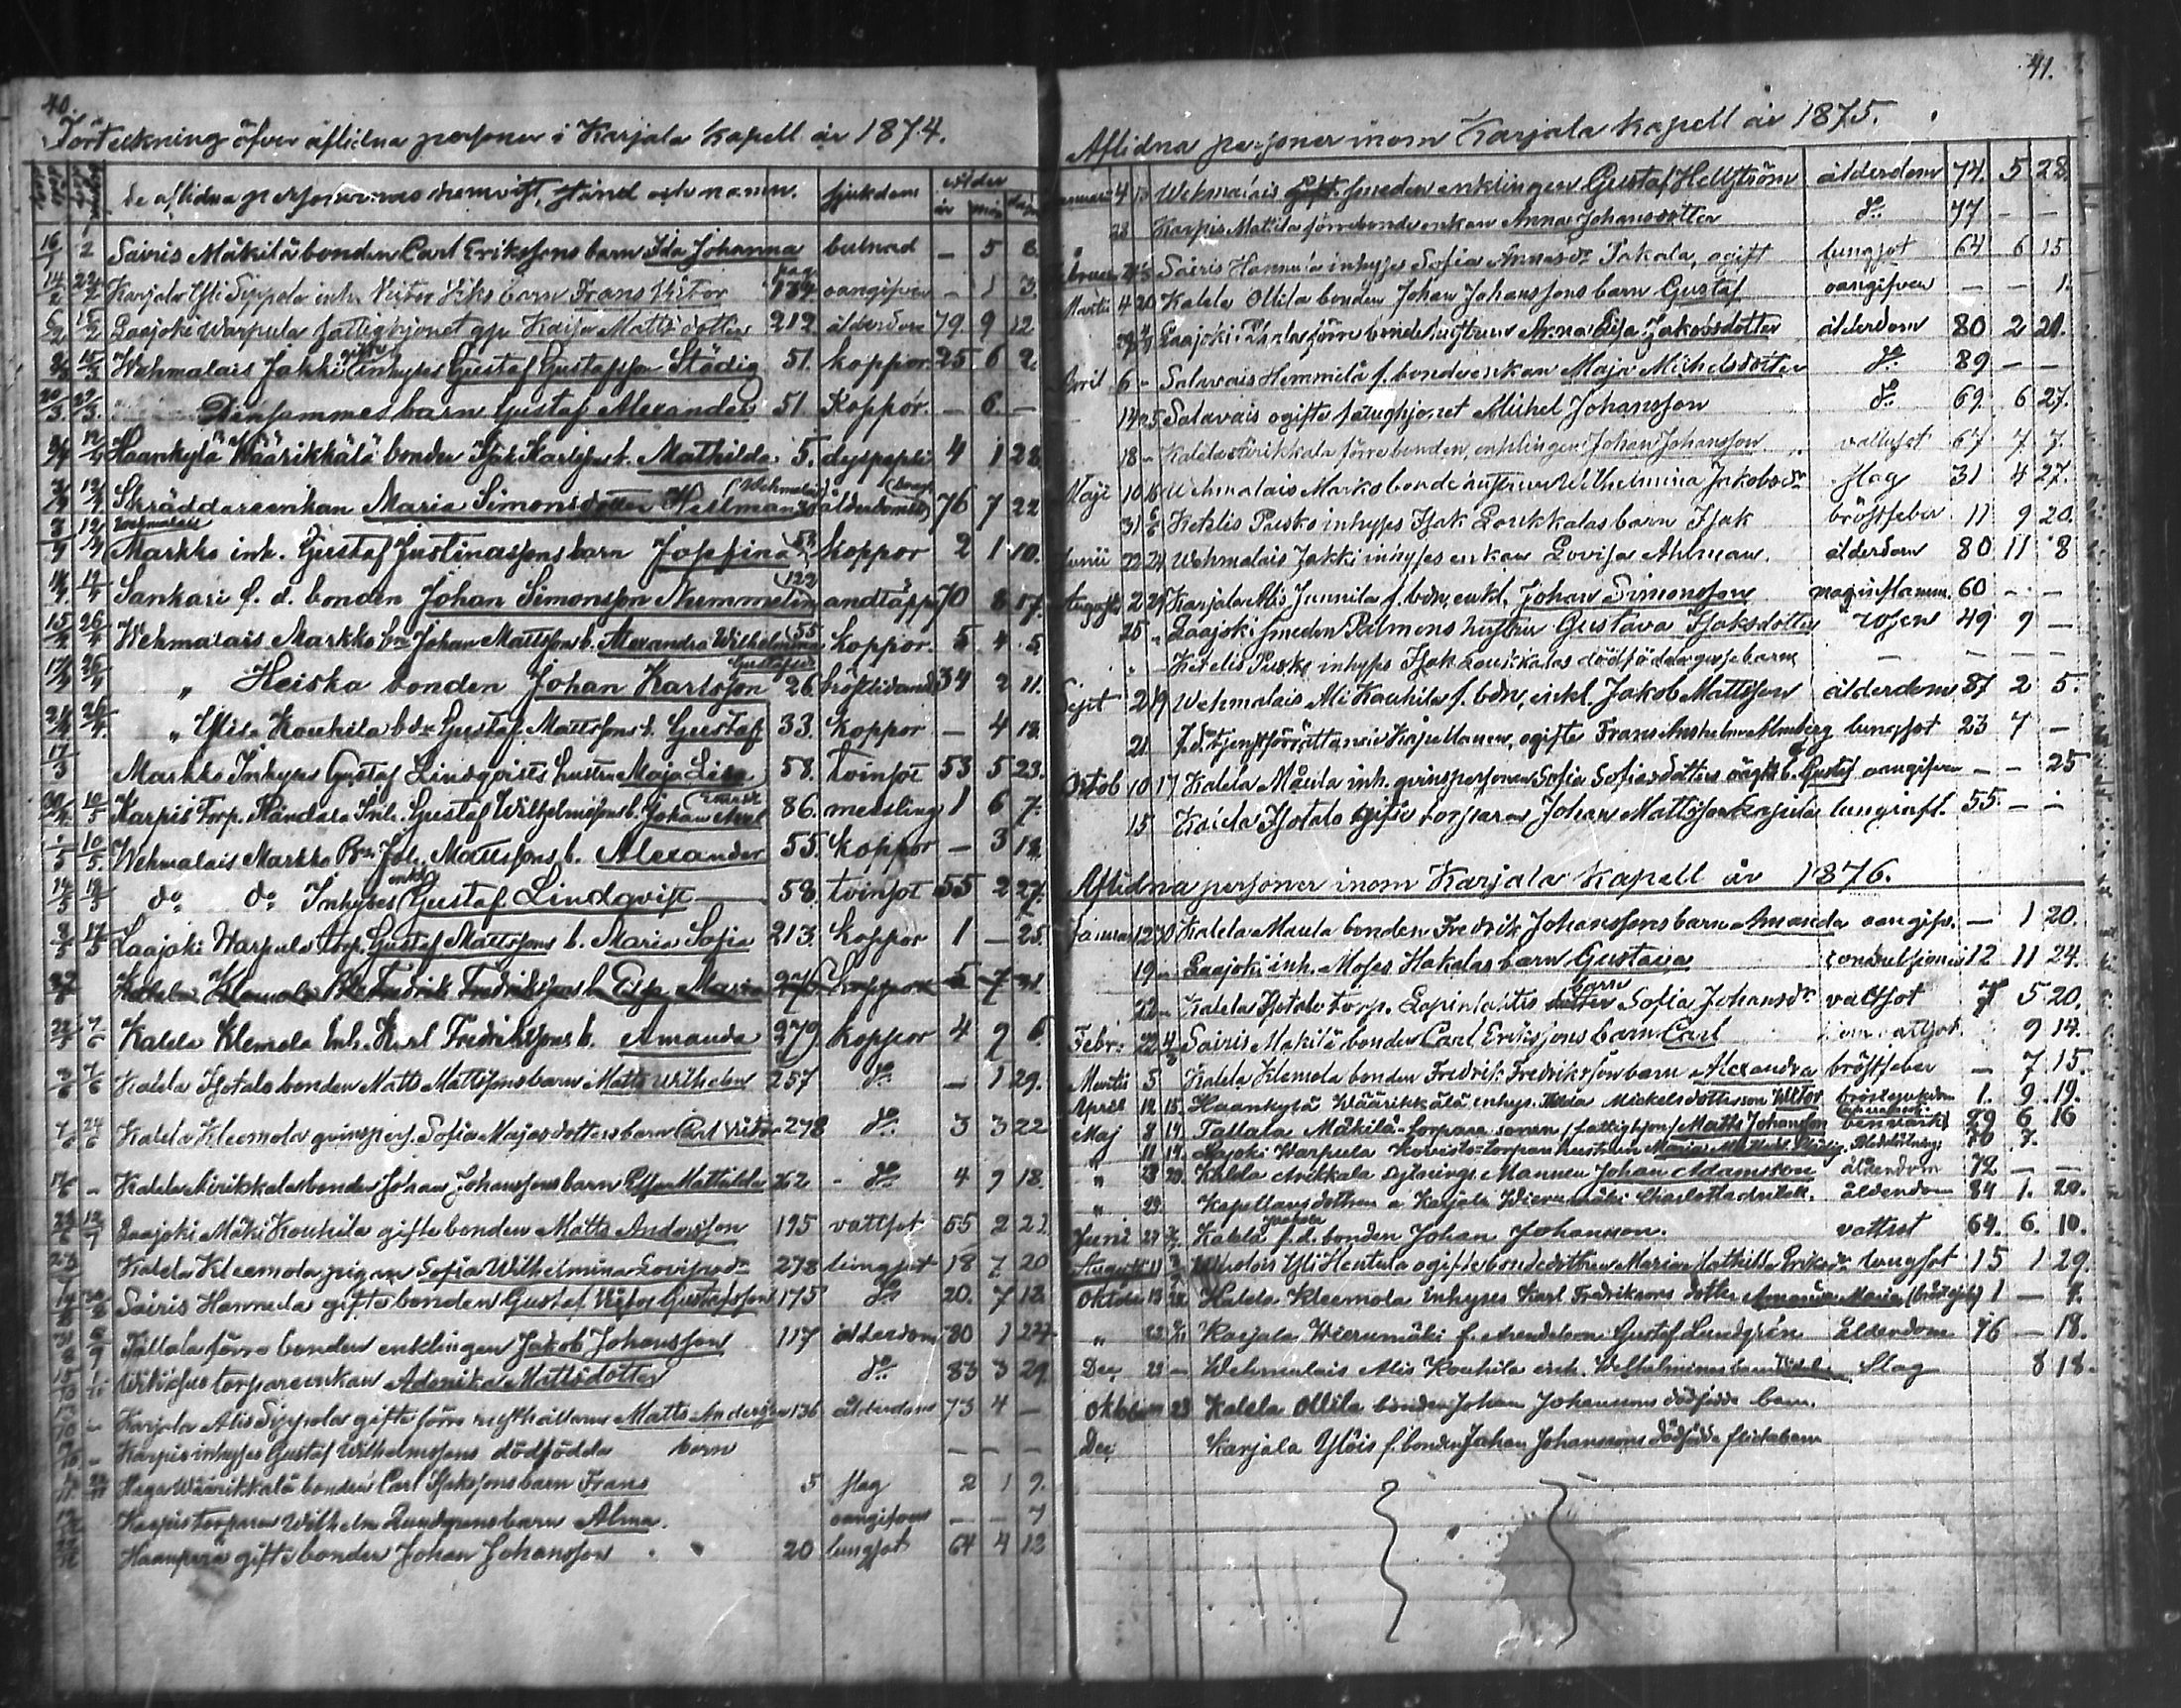 40.
Förteckning öfver aflidna personer i Karjala Kapell år 1874.
de aflidna personernas hemvist, stånd och namn. sjukdom ålder
år mån dag
16/1 1/2 Sairis Mäkilä bonden Carl Erikssons barn Ida Johanna bulnad — 5 8.
14/2 22/2 Karjala Yli Sippola inh. barn Frans Victor pag. 134 oangifven — 1 3.
6/2 15/2 Laajoki Warpula fattighjonet Kaisa Mattsdotter 212. ålderdom 79 9 12
15/3 Wehmalais Jakki gifte inhyses Gustaf Gustafsson Städig 51. koppor. 25 6 2
20/3 29/3. Densammes barn Gustaf Alexander 51 Koppor. — 6. —
12/4 Haankylä Wäärikkälä bonden Isak Karlssons b. Mathilda. 5. dyspepsi 4 1 28.
12/4 Skräddareenkan Maria Simonsdotter Hellman (Wehmalais) ålderdoms 76 7 22
12/4 Wehmalais Markko inh. Gustaf Justinassons barn Josefina 53 koppor 2 1 10.
12/4 Sankari f. d. bonden Johan Simonsson Nummelin 122 andtäppa 70 8 17.
15/4 26/4 Wehmalais Markko Johan Mattssons b. Alexandra Wilhelmina 55 koppor. 5 4 5
17/4 26/4 „ Heiska bonden Johan Karlsson 26. bröstlidande 34 2 11.
21/4 26/4 „ Ylisa Kouhila bdn Gustaf Mattssons b. Gustaf 33. koppor — 4 18.
17/3 Markko Inhyses Gustaf Lindqvists hustru Maja Lisa 58. tvinsot 53 5 23.
30/4 10/5 Karpis Torp. Inh. Gustaf Wilhelmssons b. Johan 86. messling 1 6 7.
1/5 10/5. Wehmalais Markko Bdn Joh. Mattssons b. Alexander 55. koppor — 3 12.
14/5 19/5 do do Inhyses enkl. Gustaf Lindqvist 58. tvinsot 55 2 27.
8/5 17/5 Laajoki Warpula torp. Gustaf Mattssons b. Maria Sofia 213. koppor 1 — 25.
Kalela Klemola Fredrik Fredrikssons b. Maria 276 Koppor 5 7
22/5 7/6 Kalela Klemola Inh. Karl Fredrikssons b. Amanda 279. koppor 4 9 6.
3/6 7/6 Kalela Isotalo bonden Matts Mattssons barn Matts Wilhelm 257 do — 1 29.
7/6 24/6 Kalela Kleemola qvinspers. Sofia Majasdotters barn Carl Victor 278 do 3 3 22
17/6 - Kalela Airikkala bonden Johan Johanssons barn Mathilda 262 - do 4 9 18.
12/7 Laajoki Mäki Kouhila gifte bonden Matts Andersson 195 vattsot 55 2 23
Kalela Kleemola pigan Sofia Wilhelmina Lovisadr 278 lungsot 18 7 20
Sairis Hannula gifte bonden Gustaf Victor Gustafsson 175 do 20. 7 13.
31/8 6/9 Tallala förre bonden enklingen Jakob Johansson 117 ålderdom 80 1 24
torpareenkan Mattsdotter do 83 3 29.
Karjala Alis Sippola gifte förre rusthållaren Matts Andersson 136 ålderdom 73 4 —
Karpis inhyses Gustaf Wilhelmssons dödfödda barn — — —
Haga Wäärikkälä bonden Carl Isakssons barn Frans 5 slag 2 1 9.
Karpis torparen Wilhelm Lundgrens barn Alma. oangifven — — 7
Haanperä gifte bonden Johan Johansson 20 lungsot 64 4 13
41.
Aflidna personer inom Karjala Kapell år 1875.
Januari 4 Wehmalais smeden enklingen Gustaf Hellström ålderdom 74. 5 28.
23 Karpis Mattila förre bondeenkan Anna Johansdotter do 77 — —
Februari Sairis Hannula inhyses Sofia Annasdr Takala, ogift lungsot 64 6 15
Martii 4 20 Kalela Ollila bonden Johan Johanssons barn Gustaf oangifven — — 1.
Laajoki förre bondehustrun Anna Lisa Jakobsdotter ålderdom 80 2 21.
April 6 - Salavais Hemmilä f. bondeenkan Maja Michelsdotter do 89 — —
14 25 Salavais ogifte fattighjonet Michel Johansson do 69. 6 27.
18 - Kalela Airikkala förre bonden, enklingen Johan Johansson. vattusot 67 7 7.
Maji 10 16 Wehmalais Marko bondehustrun Wilhelmina Jakobsdr slag 31 4 27.
31 6/6 Ketelis Pusko inhyses Isak Loukkalas barn Isak bröstfeber 11 9 20.
Junii 22 24 Wehmalais Jakki inhyses enkan Lovisa Ahlman. ålderdom 80 11 8
Augusti 2 29 Karjala Alis Junnila f. bdn, enkl. Johan Simonsson maginflamm. 60 — —
25 „ Laajoki smeden Palmens hustru Gustava Isaksdotter rosen 49 9 —
„ Ketelis Pusko inhyses Isak Loukkalas dödfödda gossebarn — — — —
Sept 2 19 Wehmalais Ali Kouhila f. bdn, enkl. Jakob Mattsson ålderdom 87 2 5.
21. F.d. tjenstförrättande Kapellanen, ogifte Frans Anshelm Almberg lungsot 23 7 —
Octob 10 17 Kalela Mäula inh. qvinspersonen Sofia Sofiasdotters oägta b. Gustaf oangifven — — 25
15 Kalela Isotalo gifte torparen Johan Mattsson lunginfl. 55. — —
Aflidna personer inom Karjala Kapell år 1876.
Januari 12 30 Kalela Maula bonden Fredrik Johanssons barn Amanda oangifv. — 1 20.
19 - Laajoki inh. Moses Hakalas barn Gustava convulsioner 12 11 24.
22 - Kalela Isotalo torp. Lapintalos barn Sofia Johansdr vattsot 7 5 20.
Febr: 22 Sairis Mäkilä bonden Carl Erikssons barn Carl 9 14.
Martii 5 Kalela Klemola bonden Fredrik Fredriksson barn Alexandra bröstfeber — 7 15.
April 12 15. Haankylä Wäärikkälä inhys. Hilda Mickelsdotters son Viktor bröstsjukdom 1. 9. 19.
Maj 8 14 Tallala Mäkilä torpare sonen (fattighjon) Matts Johansson 29 6 16
„ 11 14. Lajoki Warpula Kovisto torpare hustrun Maria 70 7.
„ 28 Kalela Airikkala sytnings Mannen Johan Adamsson ålderdom 72 — —
„ 29. Kapellans dottren å Karjala Wierumäki Charlotta ålderdom 84 1. 20.
Juni 27 Kalela f.d. bonden Johan Johansson. vattsot 64. 6. 10.
Augusti 11 Yli Hentula ogifte bondedottren Maria Mathilda Eriksdr lungsot 15 1 29.
Oktob 13 22 Kalela Kleemola inhyses Karl Fredriksons dotter Amanda Maria 1 — 7.
„ 22 Karjala Wierumäki f. Gustaf Lundgrén ålderdom 76 — 18.
Dec 23 — Wehmalais Alis Kouhila inh. Wilhelminas barn Slag 8 18.
Oktober 23 Kalela Ollila bonden Johan Johanssons dödfödda barn.
Dec Karjala Yläis f. bonden Johan Johanssons dödfödda flickebarn